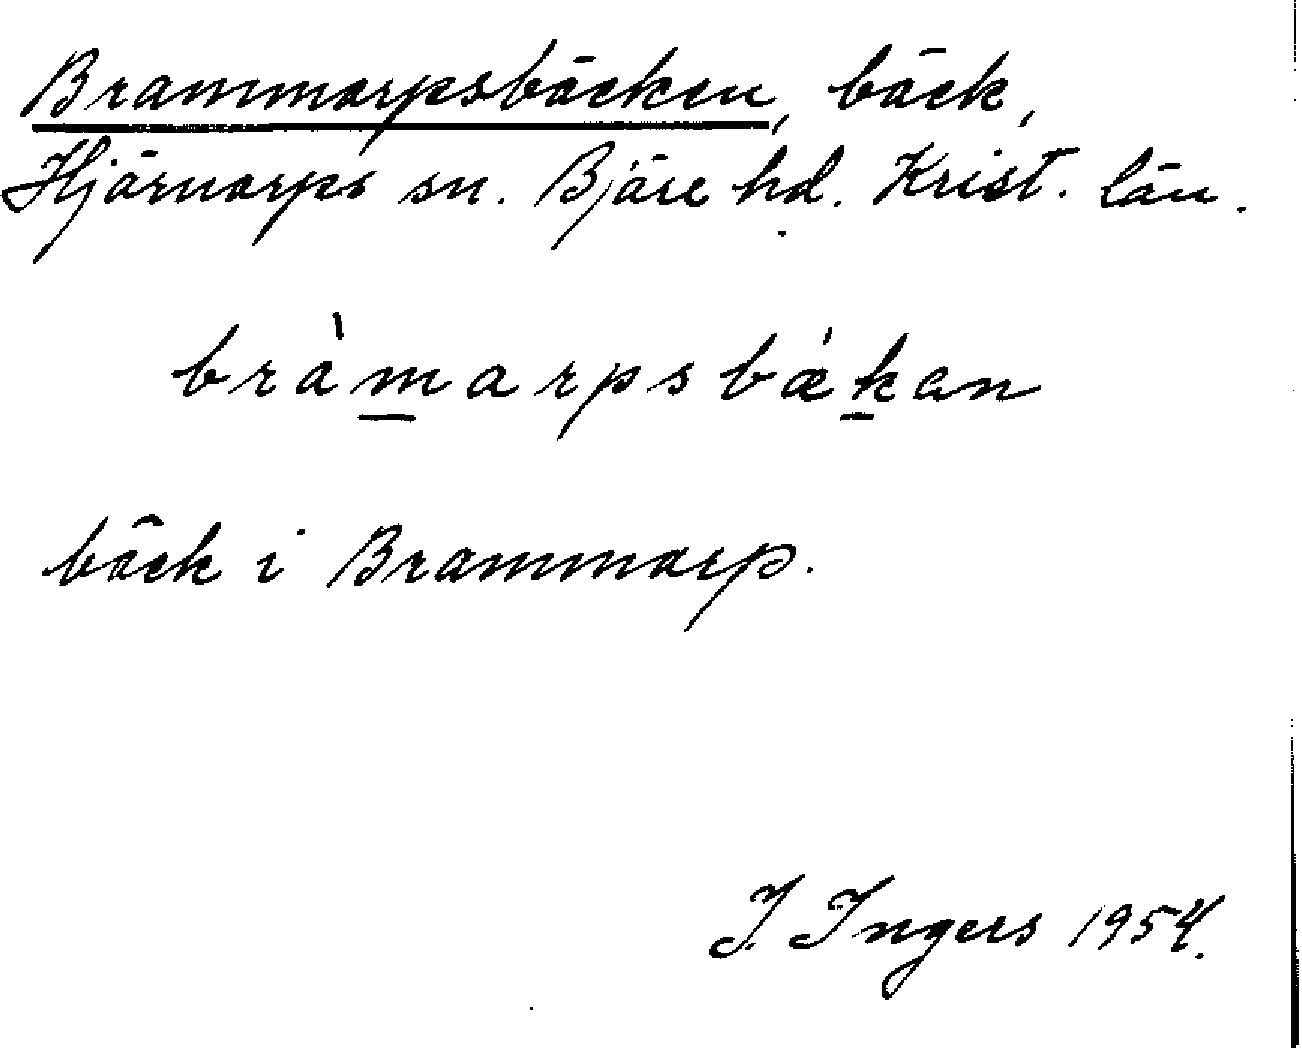 Brammarpsbäcken, bäck,
Hjärnarps sn. Bjäre hd. Krist. län.
bràmarpsbǽkan
bäck i Brammarp.
I. Ingers 1954.